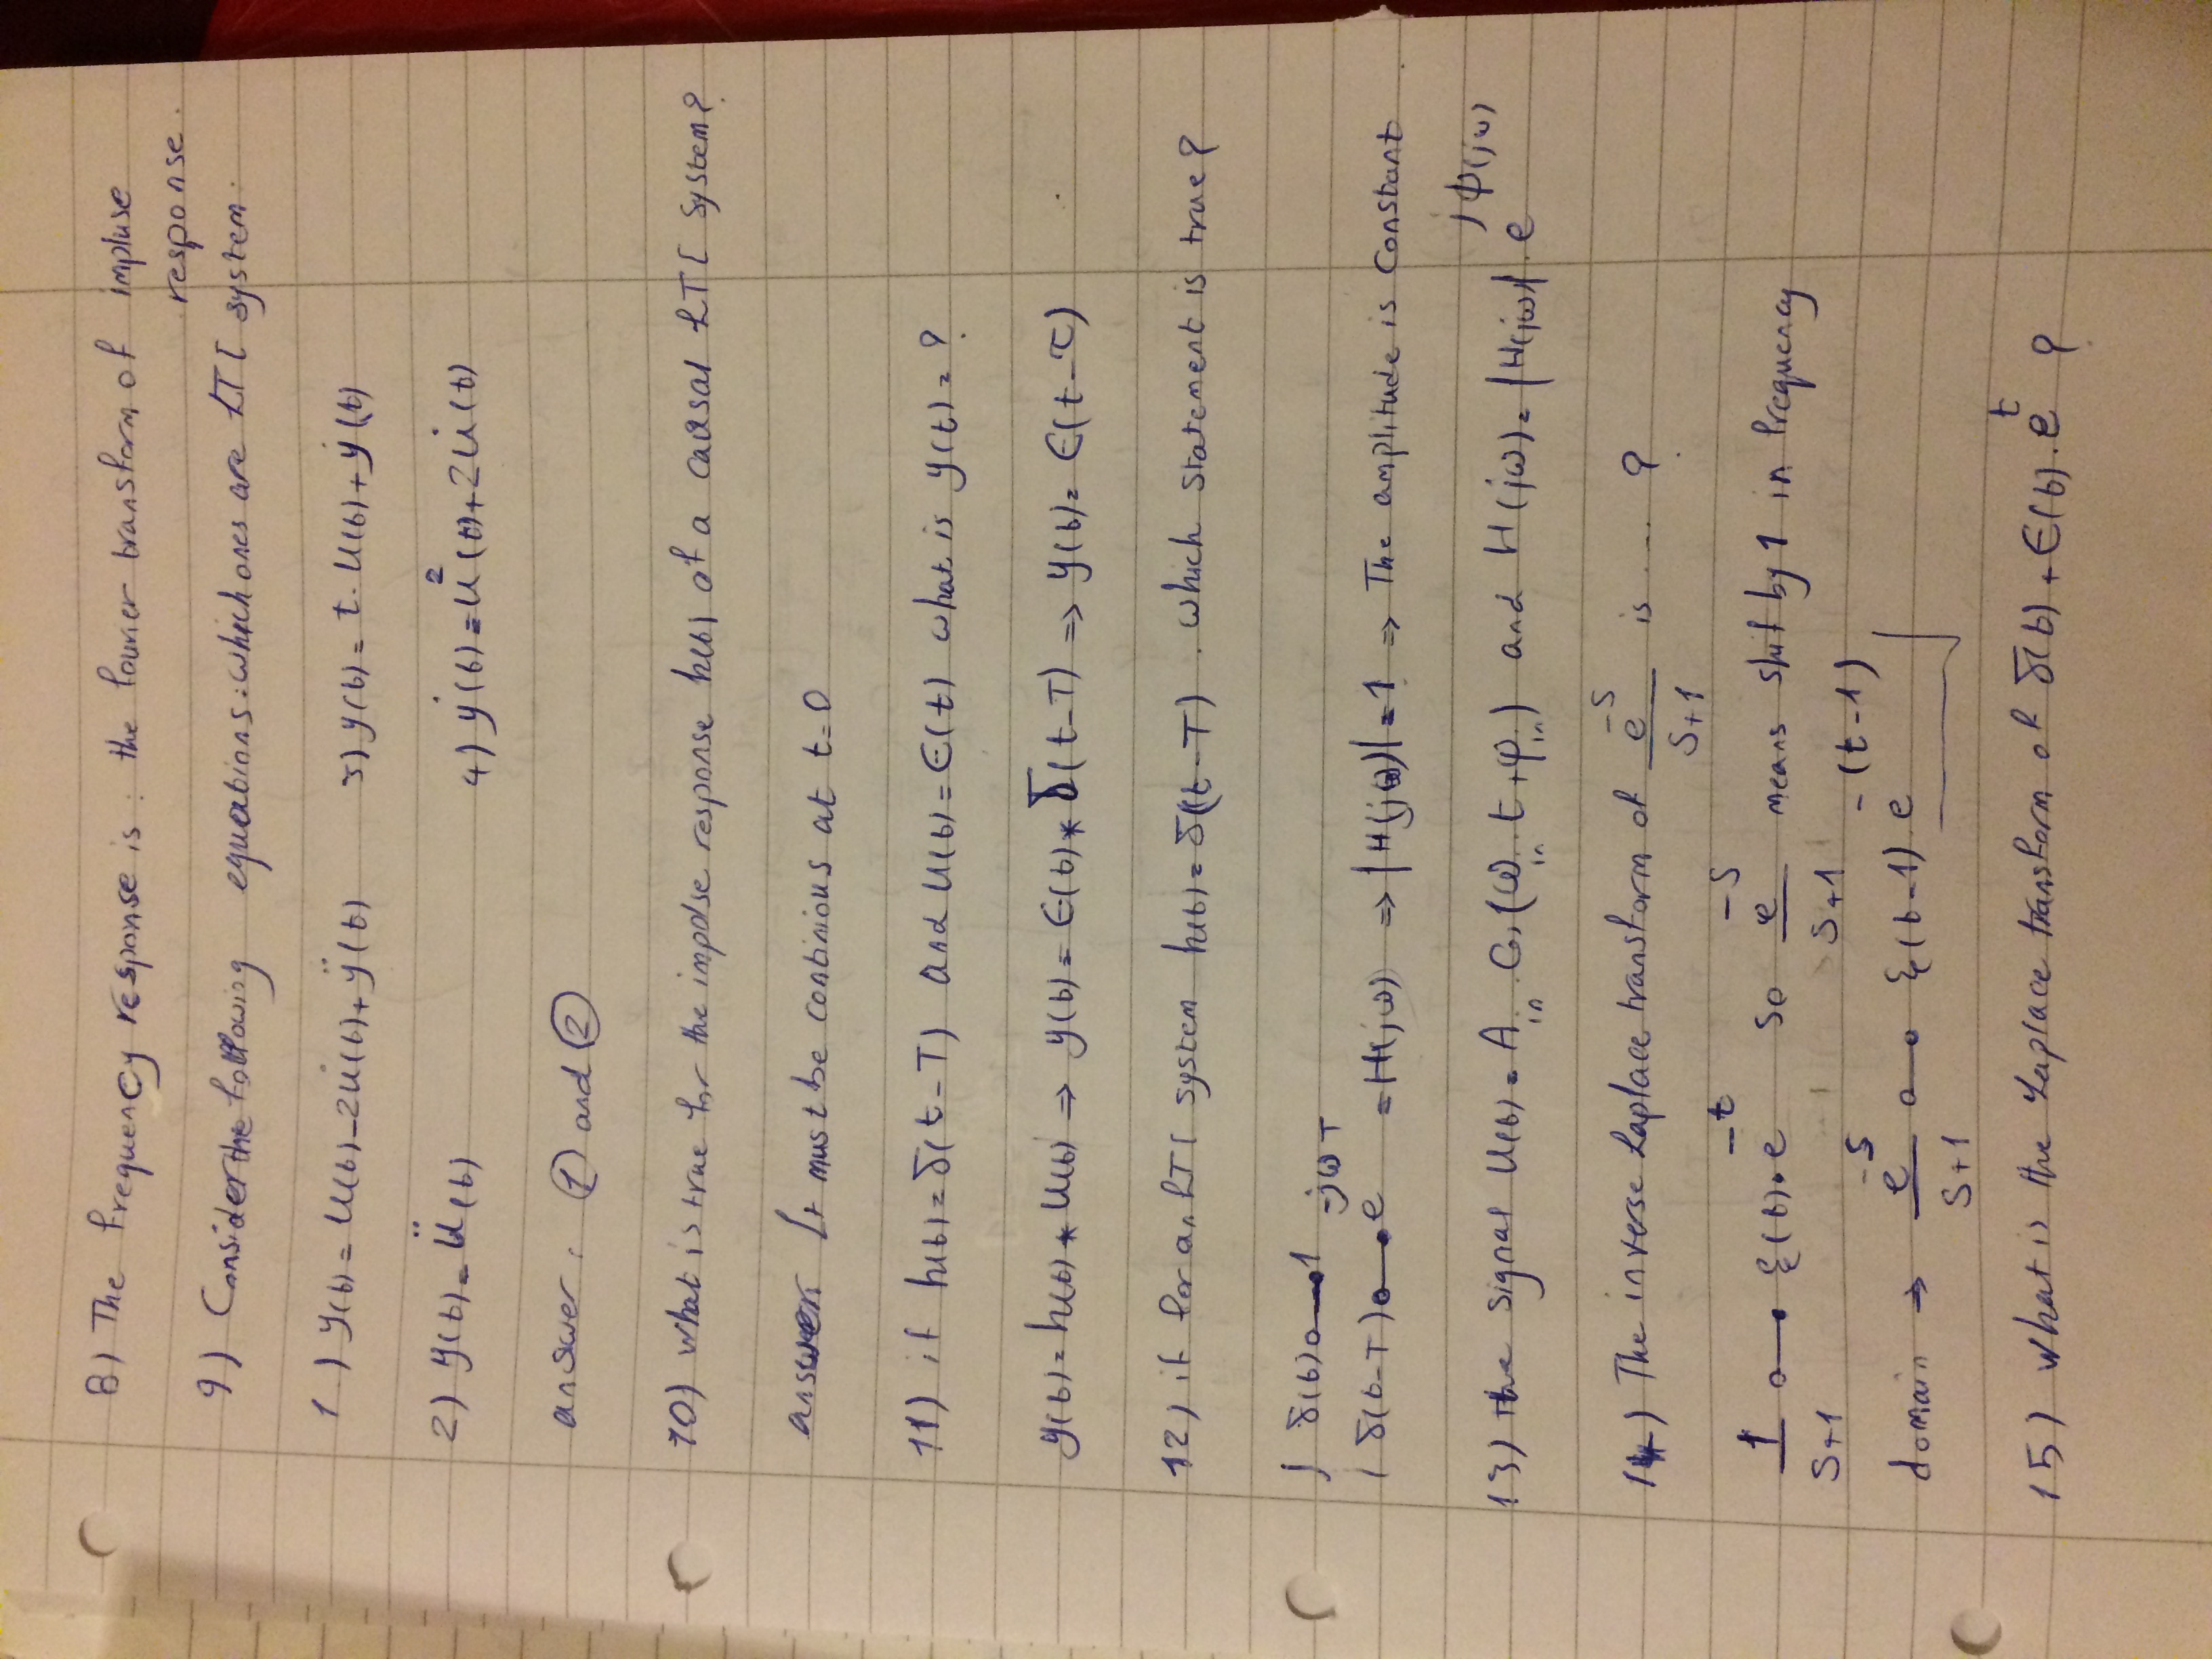 8) The frequency response is : the fourier transform of impluse
response.
9) Consider the following equations : which ones are LTI system.
1) y(t) = u(t) - 2u̇(t) + ÿ(t)   3) y(t) = t. u(t) + ẏ(t)
2) y(t) = ü(t)   4) ẏ(t) = u²(t) + 2u̇(t)
answer : ① and ②
10) what is true for the impulse response h(t) of a causal LTI system?
answer: It must be continious at t=0
11) if h(t) = δ(t-T) and u(t) = ϵ(t) what is y(t) = ?
y(t) = h(t) * u(t) ⇒ y(t) = ϵ(t) * δ(t-T) ⇒ y(t) = ϵ(t-τ)
12) if for an LTI system h(t) = δ(t-T) . which statement is true?
δ(t) o—• 1
δ(t-T) o—• e^(-jωT) = H(jω) ⇒ |H(jω)| = 1 ⇒ The amplitude is constant.
13) the signal u(t) = A_in . Cos(ω_in t + φ_in) and H(jω) = |H(jω)| . e^(jϕ(jω))
14) The inverse Laplace transform of e^(-s)/(s+1) is .... ?
1/(s+1) o—• ξ(t) • e^(-t) so e^(-s)/(s+1) means shif by 1 in frequency
domain → e^(-s)/(s+1) o—o ξ(t-1) . e^(-(t-1))
15) what is the Laplace transform of δ(t) + ϵ(t) . e^t ?